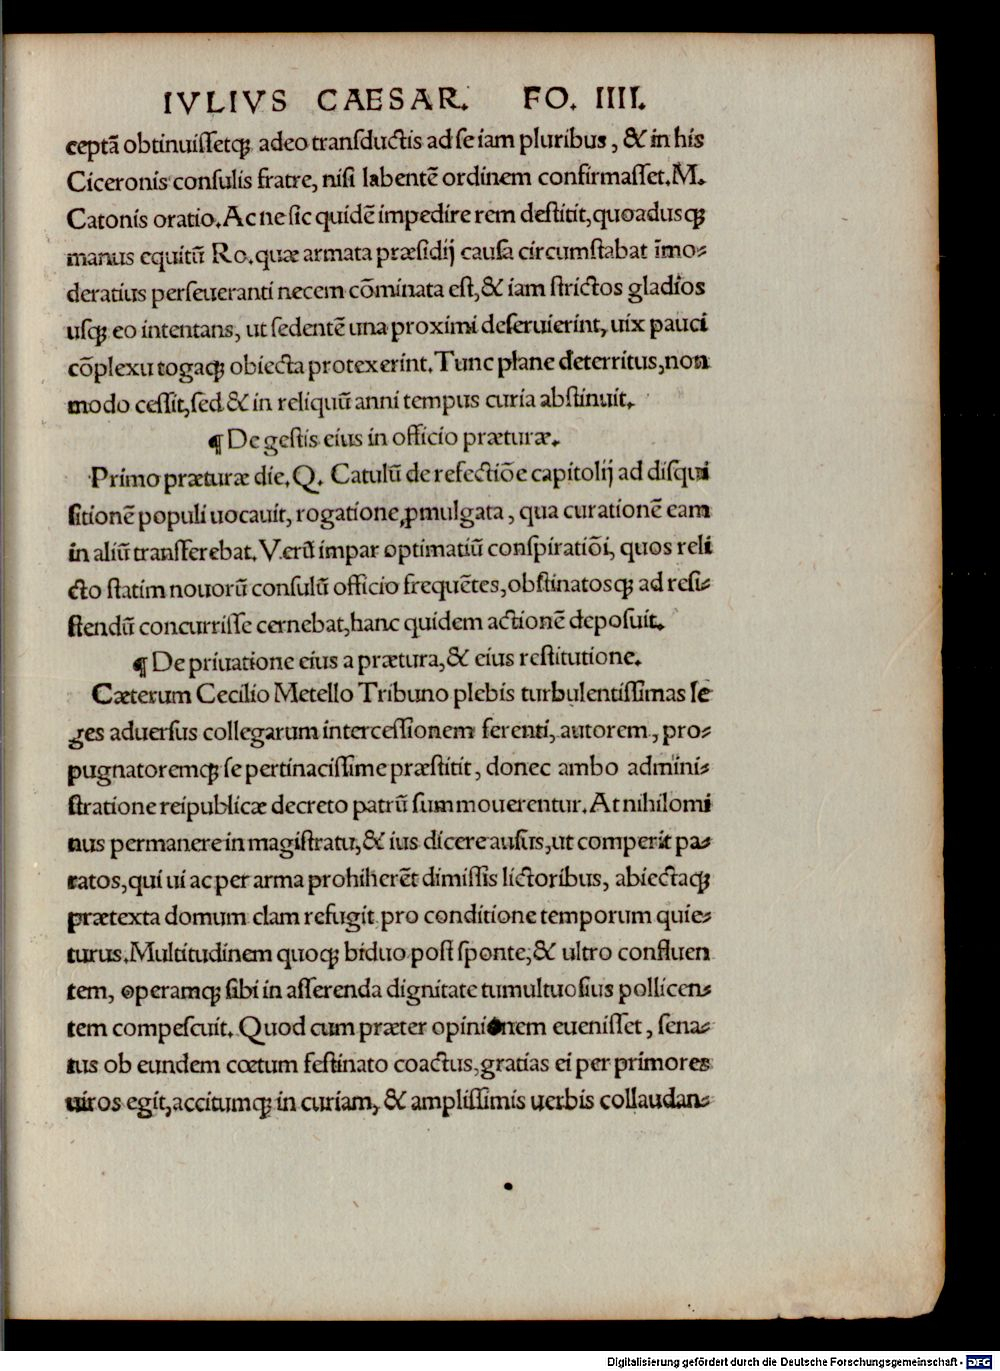 IVLIVS CAESAR. FO. IIII.
ceptã obtinuiſſetq́; adeo tranſductis ad ſe iam pluribus, & in his
Ciceronis conſulis fratre, niſi labentẽ ordinem confirmaſſet. M.
Catonis oratio. Ac ne ſic quidẽ impedire rem deſtitit, quoadusq́;
manus equitũ Ro. quæ armata præſidij cauſa circumſtabat ĩmo-
deratius perſeueranti necem cõminata eſt, & iam ſtrictos gladios
uſq́; eo intentans, ut ſedentẽ una proximi deſeruierint, uix pauci
cõplexu togaq́; obiecta protexerint. Tunc plane deterritus, non
modo ceſſit, ſed & in reliquũ anni tempus curia abſtinuit.
¶ De geſtis eius in officio præturæ.
Primo præturæ die. Q. Catulũ de refectiõe capitolij ad diſqui
ſitionẽ populi uocauit, rogatione ꝓmulgata, qua curationẽ eam
in aliũ transferebat. Verũ impar optimatiũ conſpiratiõi, quos reli
cto ſtatim nouorũ conſulũ officio frequẽtes, obſtinatosq́; ad reſi-
ſtendũ concurriſſe cernebat, hanc quidem actionẽ depoſuit.
¶ De priuatione eius a prætura, & eius reſtitutione.
Cæterum Cecilio Metello Tribuno plebis turbulentiſſimas le
ges aduerſus collegarum interceſſionem ferenti, autorem, pro-
pugnatoremq́; ſe pertinaciſſime præſtitit, donec ambo admini-
ſtratione reipublicæ decreto patrũ ſummouerentur. At nihilomi
nus permanere in magiſtratu, & ius dicere auſus, ut comperit pa-
ratos, qui ui ac per arma prohiherẽt dimiſſis lictoribus, abiectaq́;
prætexta domum clam refugit pro conditione temporum quie-
turus. Multitudinem quoq́; biduo poſt ſponte, & ultro confluen
tem, operamq́; ſibi in aſſerenda dignitate tumultuoſius pollicen-
tem compeſcuit. Quod cum præter opinionem eueniſſet, ſena-
tus ob eundem cœtum feſtinato coactus, gratias ei per primores
uiros egit, accitumq́; in curiam, & ampliſſimis uerbis collaudan-
Digitalisierung gefördert durch die Deutsche Forschungsgemeinschaft - DFG